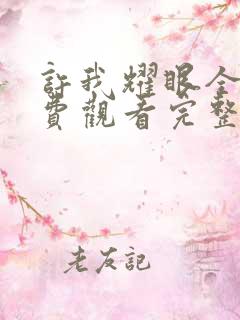 許我耀眼全
費觀看完整
老友記